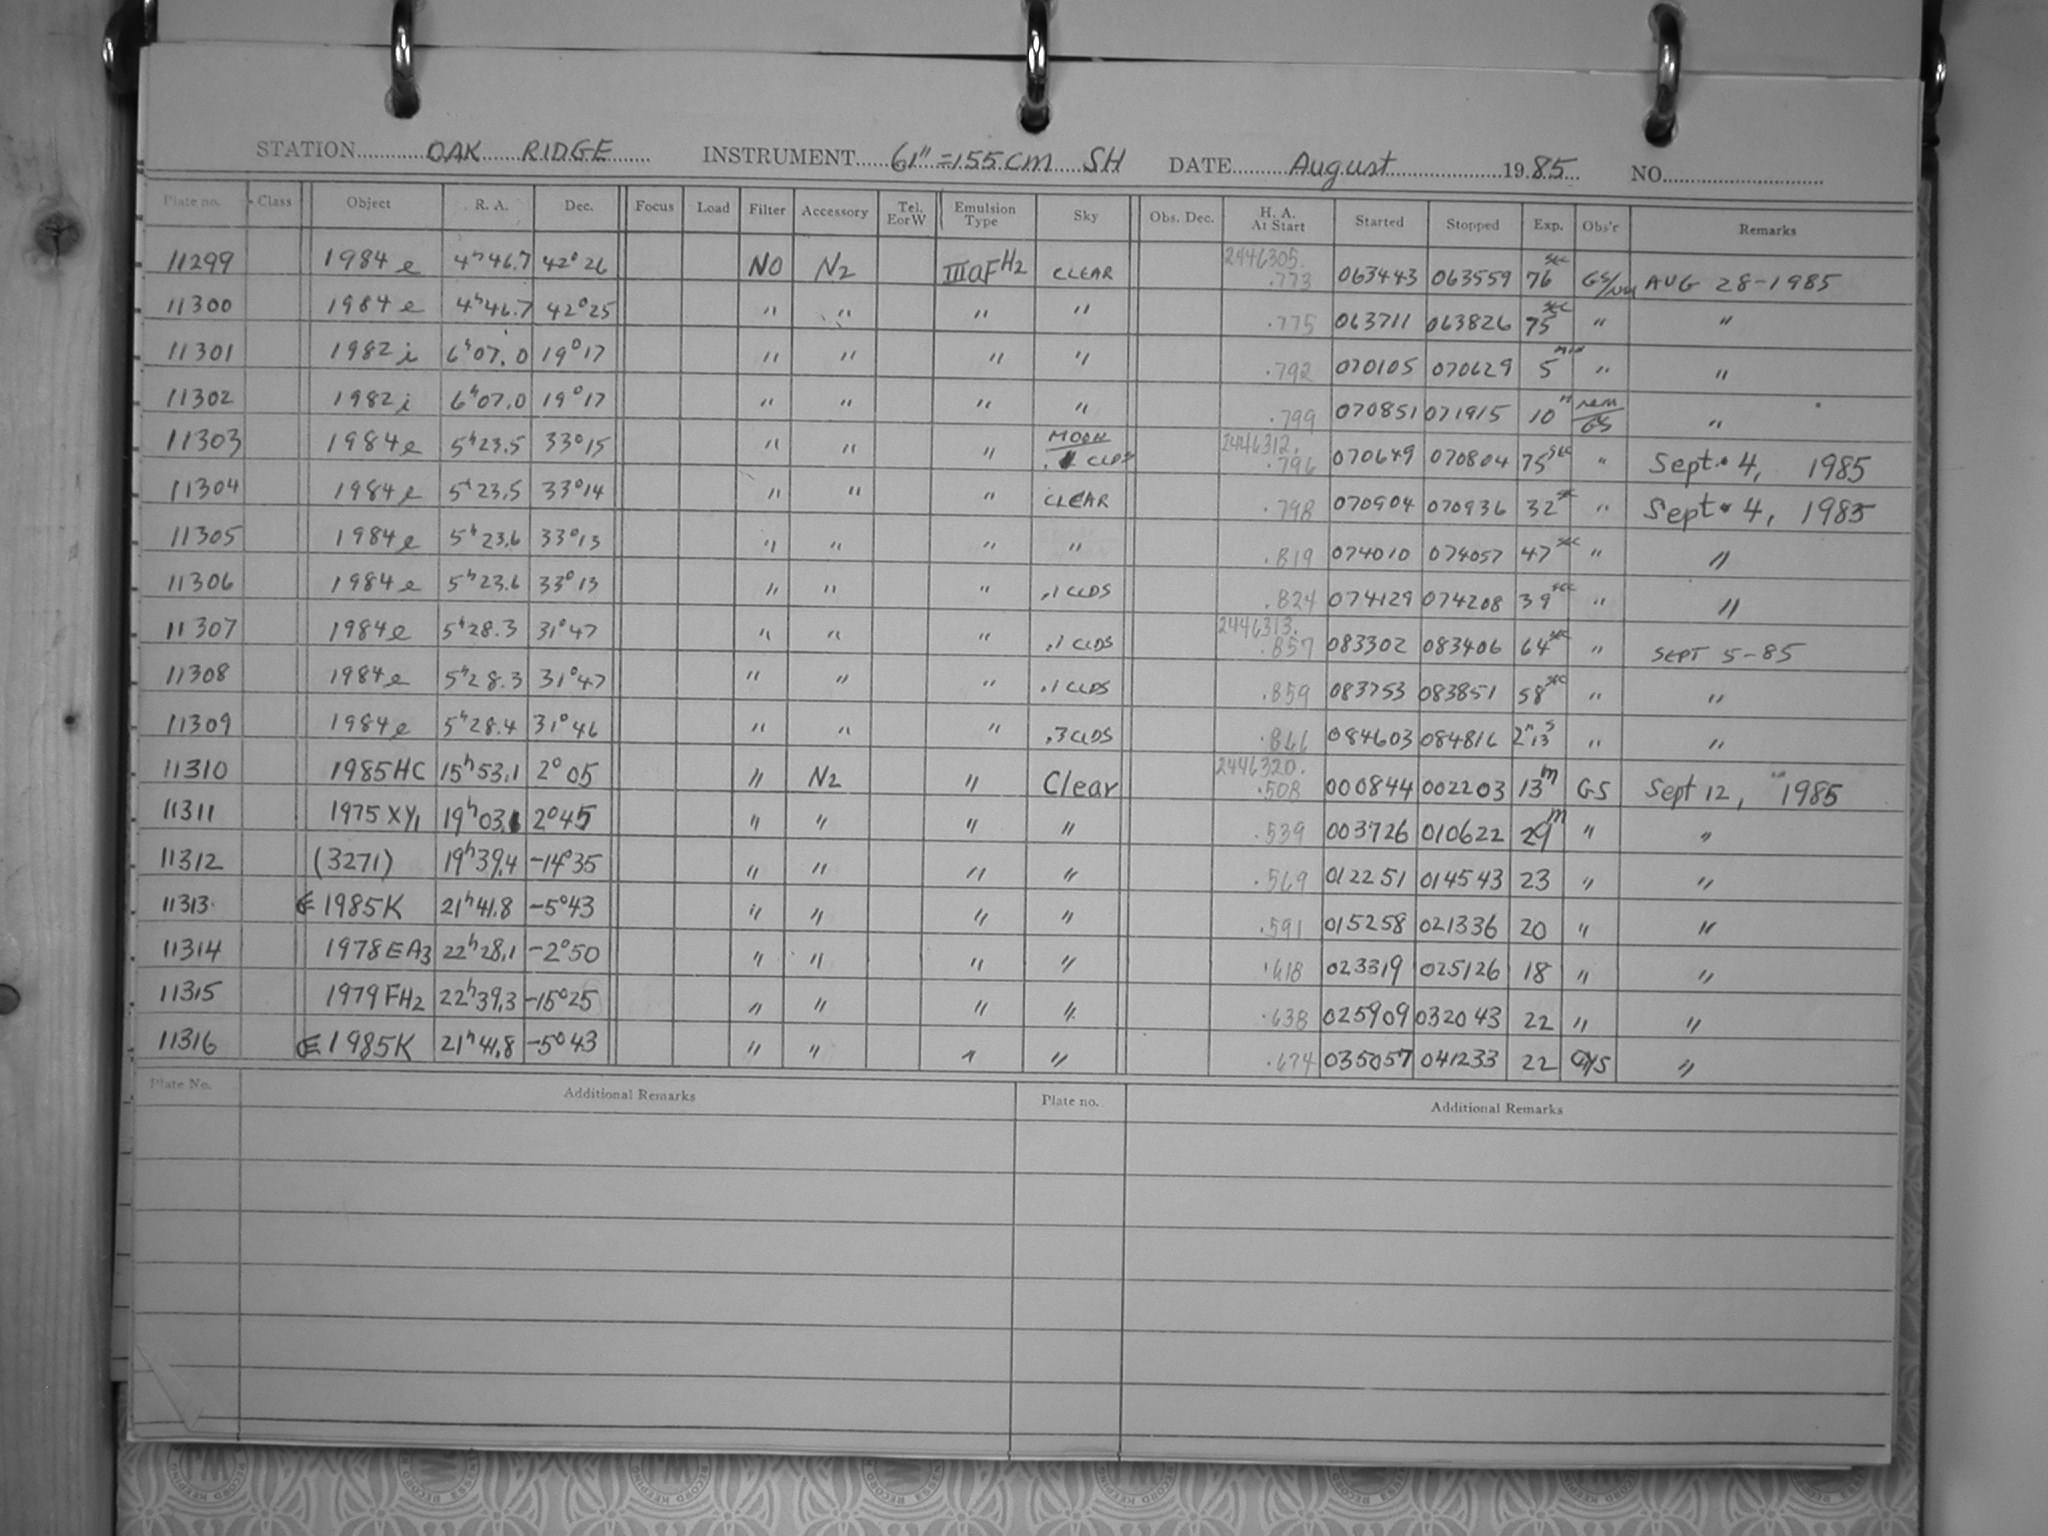 STATION OAK RIDGE INSTRUMENT 61"=155cm SH DATE August 1985 NO.
Plate no. Class Object R. A. Dec. Focus Load Filter Accessory Tel. E or W Emulsion Type Sky Obs. Dec. H. A. At Start Started Stopped Exp. Obs'r Remarks
11299 1984e 4h46.7 42°26 NO N2 IIIaF H2 CLEAR 2446305. .773 063443 063559 76 sec GS/ AUG 28-1985
11300 1984e 4h46.7 42°25 " " " " .775 063711 063826 75 sec " "
11301 1982i 6h07.0 19°17 " " " " .792 070105 070629 5 min " "
11302 1982i 6h07.0 19°17 " " " " .799 070851 071915 10 " GS "
11303 1984e 5h23.5 33°15 " " " MOON .1 CLDS 2446312. .796 070649 070804 75 sec " Sept. 4, 1985
11304 1984e 5h23.5 33°14 " " " CLEAR .798 070904 070936 32 sec " Sept. 4, 1985
11305 1984e 5h23.6 33°13 " " " " .819 074010 074057 47 sec " "
11306 1984e 5h23.6 33°13 " " " .1 CLDS .824 074129 074208 39 sec " "
11307 1984e 5h28.3 31°47 " " " .1 CLDS 2446313. .857 083302 083406 64 sec " SEPT 5-85
11308 1984e 5h28.3 31°47 " " " .1 CLDS .859 083753 083851 58 sec " "
11309 1984e 5h28.4 31°46 " " " .3 CLDS .866 084603 084816 2m13s " "
11310 1985HC 15h53.1 2°05 " N2 " Clear 2446320. .508 000844 002203 13m GS Sept 12, 1985
11311 1975 XY1 19h03. 2°45 " " " " .539 003726 010622 29m " "
11312 (3271) 19h39.4 -14°35 " " " " .569 012251 014543 23 " "
11313 1985K 21h41.8 -5°43 " " " " .591 015258 021336 20 " "
11314 1978EA3 22h28.1 -2°50 " " " " .618 023319 025126 18 " "
11315 1979FH2 22h39.3 -15°25 " " " " .638 025909 032043 22 " "
11316 1985K 21h41.8 -5°43 " " " " .674 035057 041233 22 GS "
Plate No. Additional Remarks Plate no. Additional Remarks